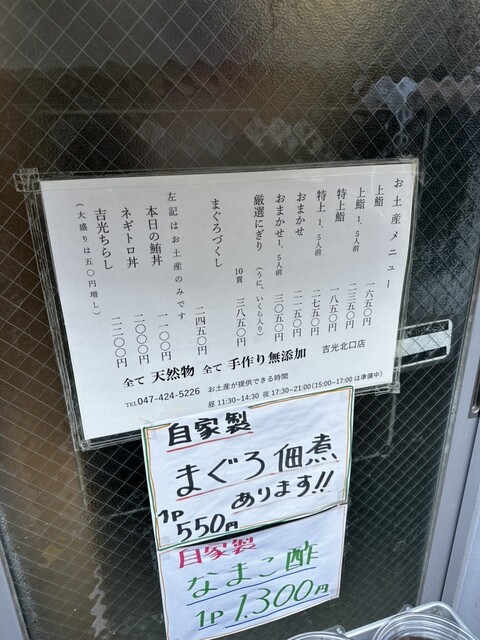 お土産メニュー
上鮨 一六五〇円
上鮨1、5人前 二三五〇円
特上鮨 一八五〇円
特上1、5人前 二七五〇円
おまかせ 二二五〇円
おまかせ1、5人前 三〇五〇円
厳選にぎり(うに、いくら入り) 10貫 三八五〇円
まぐろづくし 二四五〇円
左記はお土産のみです
本日の鮪丼 一一〇〇円
ネギトロ丼 二〇〇〇円
吉光ちらし 二二〇〇円
(大盛りは五〇円増し)
吉光北口店
全て 天然物 全て 手作り無添加
お土産が提供できる時間
TEL 047-424-5226 昼 11:30~14:30 夜 17:30~21:00 (15:00~17:00 は準備中)
自家製
まぐろ佃煮
あります!!
1P 550円
自家製
なまこ酢
1P 1.300円